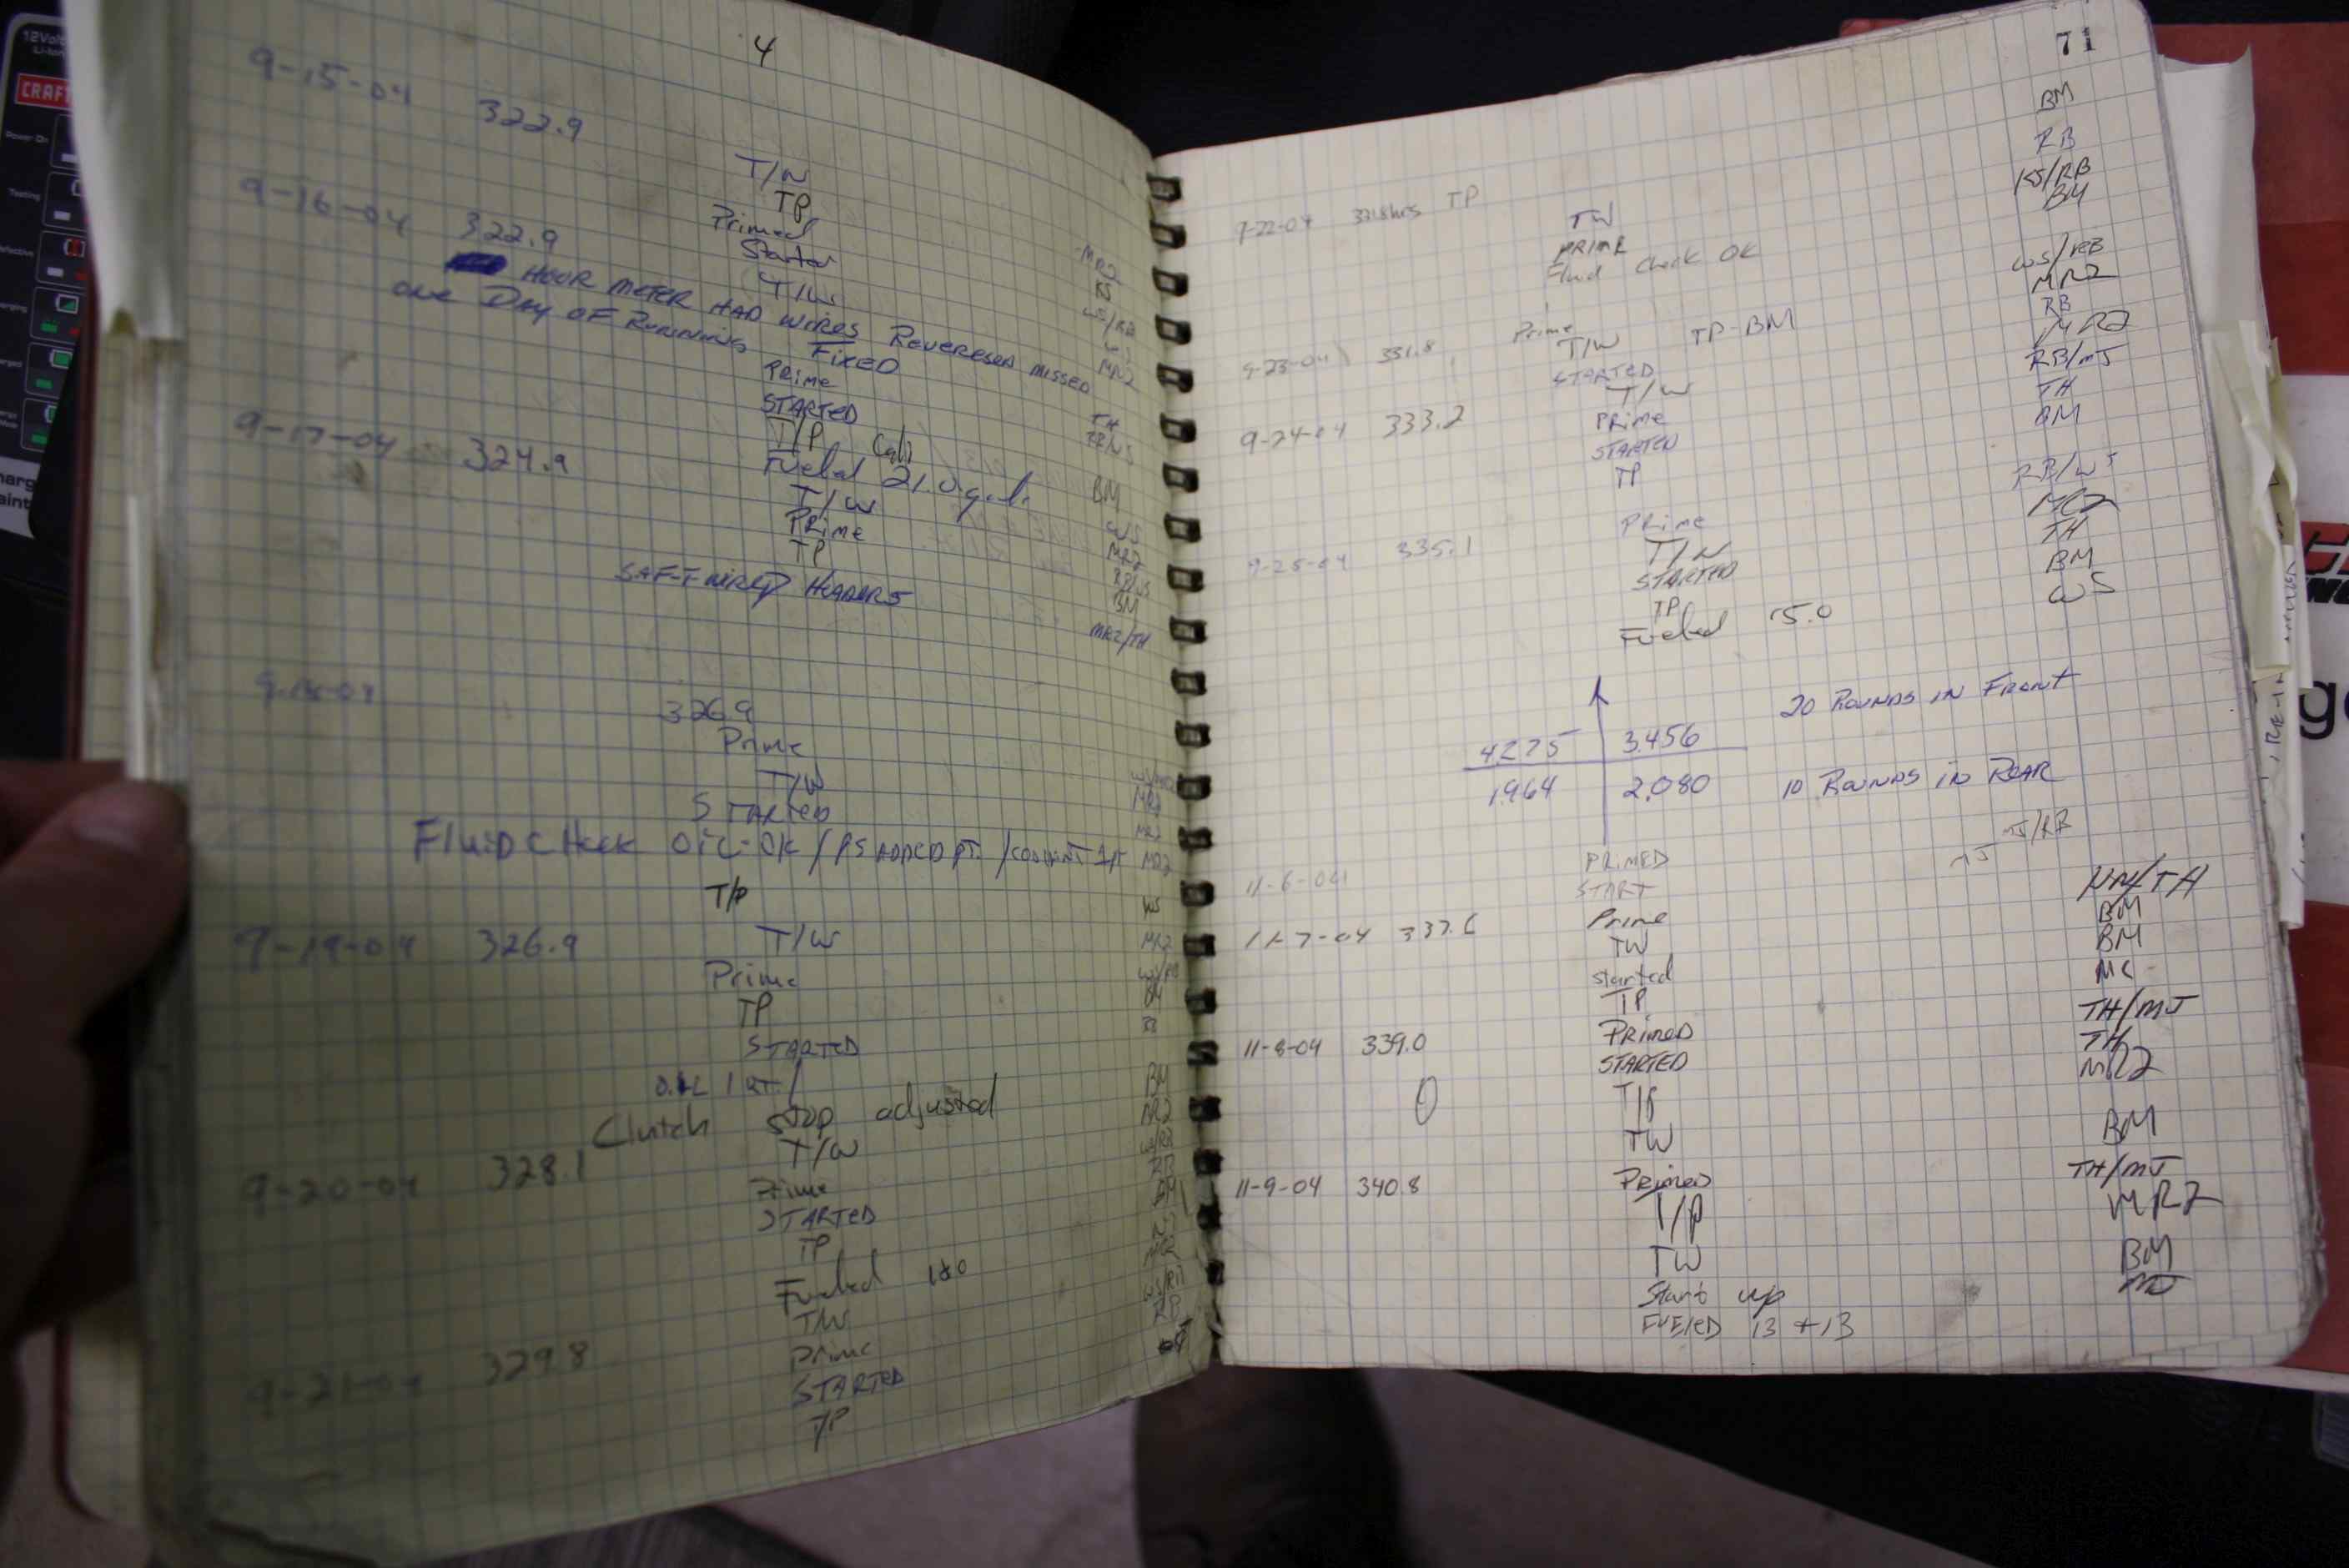 4
9-15-04 322.9
T/W
TP
Primed
Started
9-16-04 322.9
T/W
HOUR METER HAD WIRES REVERESED MISSED
ONE DAY OF RUNNING FIXED
PRime
STARTED
T/P
9-17-04 324.9
Fueled 21.0 gal.
T/W
PRime
TP
SAF-T WIRED HEADERS
326.9
Prime
T/W
STARTED
FLUID CHECK OIL-OK / PS ADDED PT. / COOLANT 1 PT MR2
T/P
9-19-04 326.9 T/W
Prime
TP
STARTED
OIL 1 QT.
Clutch stop adjusted
T/W
9-20-04 328.1
Prime
STARTED
TP
Fueled 18.0
T/W
9-21-04 329.8
Prime
STARTED
T/P
MR2
WS/RB
MR2
TH
BM
WS
MR2
BM
MR2/TH
71
BM
RB
KJ/RB
BM
331.8hrs TP
TW
PRIME
Fluid Check OK
WS/RB
MR2
RB
MR2
RB/MJ
TH
BM
9-23-04 331.8
Prime
T/W TP-BM
STARTED
T/W
9-24-04 333.2
PRime
STARTED
TP
RB/WS
MR2
TH
BM
WS
9-25-04 335.1
PRime
T/W
STARTED
TP
Fueled 15.0
4.275 3.456 20 ROUNDS IN FRONT
1.964 2.080 10 ROUNDS IN REAR
MJ/RB
MJ
11-6-04 PRIMED
START
11-7-04 337.6 Prime
TW
started
TP
BM
BM
MC
11-8-04 339.0 PRIMED TH/MJ
STARTED TH
T/P MR2
TW BM
11-9-04 340.8 PRIMED TH/MJ
T/P MR2
TW BM
Start up MJ
FUELED 13 + 13
CRAFT
12Volt
Power On
Testing